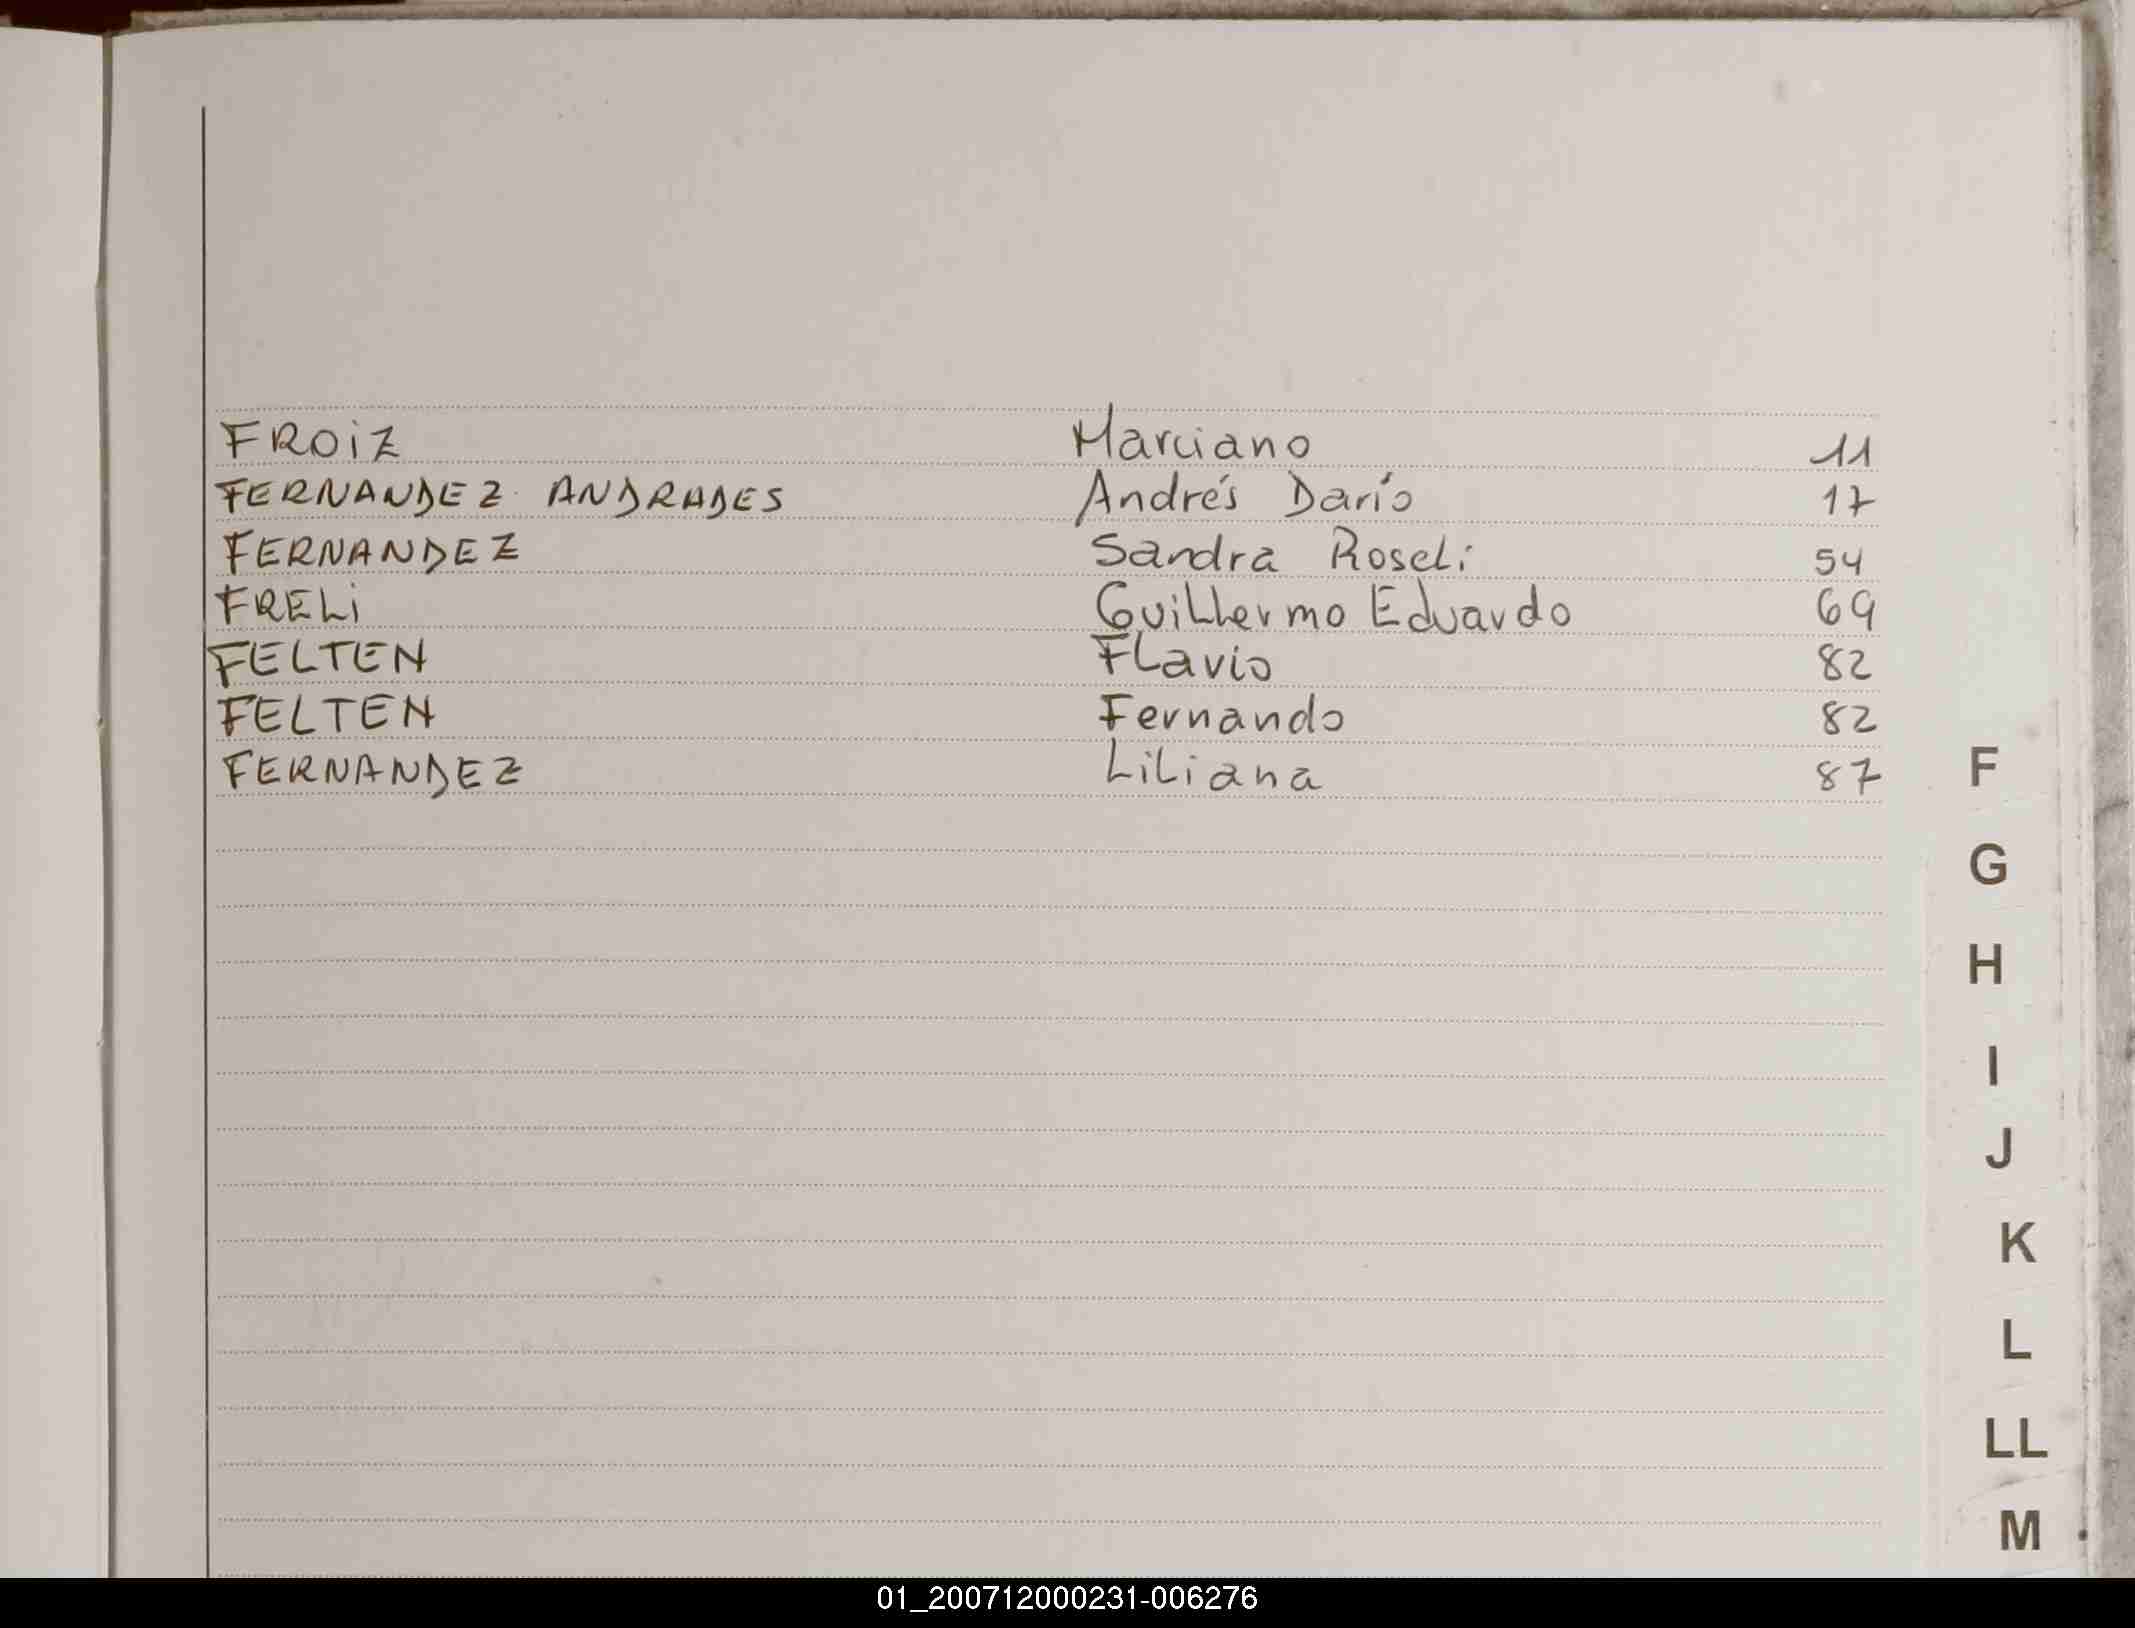 FROIZ Marciano 11
FERNANDEZ ANDRADES Andrés Darío 17
FERNANDEZ Sandra Roseli 54
FRELI Guillermo Eduardo 69
FELTEN Flavio 82
FELTEN Fernando 82
FERNANDEZ Liliana 87
F
G
H
I
J
K
L
LL
M
01_200712000231-006276